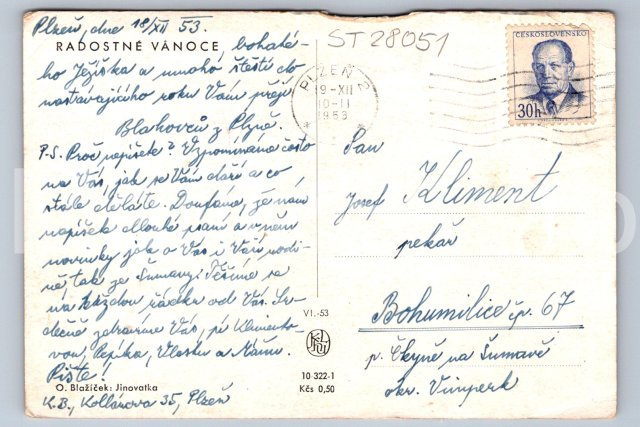 Plzeň, dne 18/XII 53.
RADOSTNÉ VÁNOCE, bohaté-
ho Ježíška a mnoho štěstí do
nastávajícího roku Vám přejí
Blahovců z Plzně.
P.S. Proč nepíšete? Vzpomínáme často
na Vás, jak se Vám daří a co
stále děláte. Doufáme, že nám
napíšete dlouhé psaní a v něm
novinky jak o Vás i Vaší rodi-
ně, tak ze Šumavy. Těšíme se
na každou řádku od Vás. Sr-
dečně zdravíme Vás, pí Klimento-
vou, Pepíka, Vlastu a Mánu.
Pište!
O. Blažíček: Jinovatka
K.B., Kollárova 35, Plzeň
VI.-53
10 322-1
Kčs 0,50
ST 28051
PLZEŇ 2
19-XII
10-11
1953
ČESKOSLOVENSKO
30h
Pan
Josef Kliment
pekař
Bohumilice čp. 67
p. Čkyně na Šumavě
okr. Vimperk